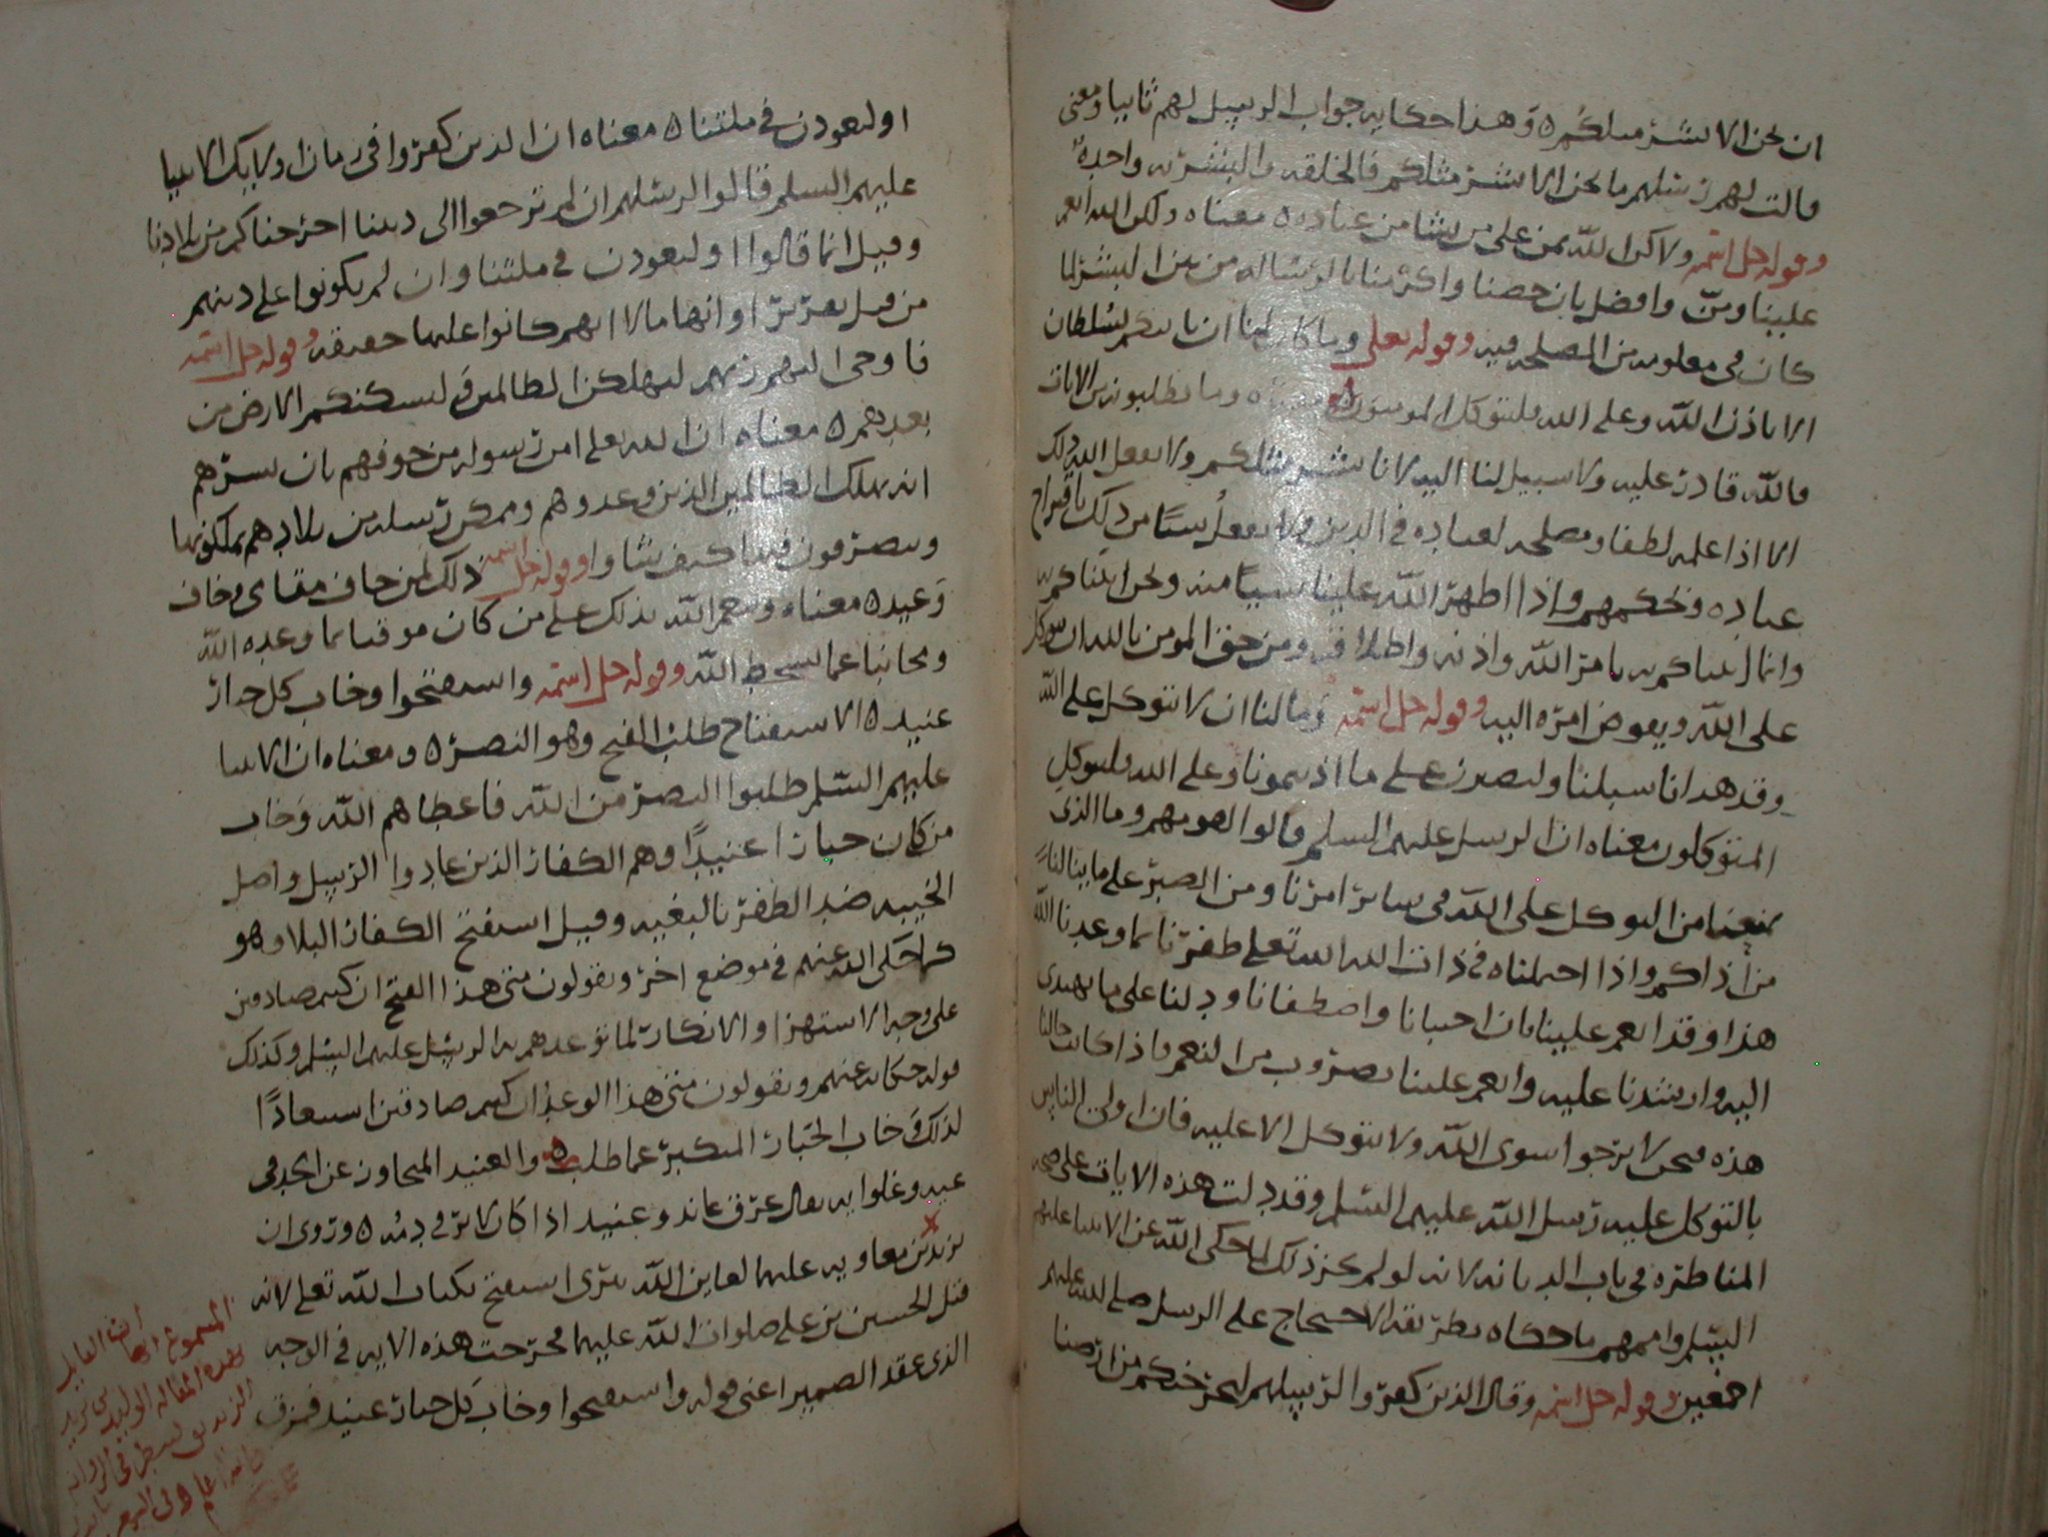 ان نحن الا بشر مثلكم ه وهذا حكايه جواب الرسل لهم ثانيا ومعنى
قالت لهم رسلهم ما نحن الا بشر مثلكم في الخلقه والبشريه واحدة
وقوله جل اسمه ولاكن الله يمن على من يشا من عباده ه معناه ولكن الله انعم
علينا ومن وافضل بان خصنا واكرمنا بالرساله من بين البشر لما
كان في معلومه من المصلحه فيه وقوله تعلى وما كان لنا ان ناتيكم بسلطان
الا باذن الله وعلى الله فليتوكل المومنون معناه وما تطلبونه من الايات
فالله قادر عليه ولا سبيل لنا اليه لانا بشر مثلكم ولا يفعل الله ذلك
الا اذا علمه لطفا ومصلحه لعباده في الدين ولا يفعل شيئا من ذلك باقتراح
عباده وتحكمهم واذا اظهر الله علينا شيئا منه ونحن اتيناكم به
وانما اتيناكم به بامر الله واذنه واطلاقه ومن حق المومن بالله ان يتوكل
على الله ويفوض امره اليه وقوله جل اسمه وما لنا ان لا نتوكل على الله
وقد هدانا سبلنا ولنصبرن على ما اذيتمونا وعلى الله فليتوكل
المتوكلون معناه ان الرسل عليهم السلم قالوا لقومهم وما الذي
يمنعنا من التوكل على الله في سائر امرنا ومن الصبر على ما ينالنا
من اذاكم واذا احتملناه في ذات الله الله تعلى ظفرنا بما وعدنا الله
هذا وقد انعم علينا بان احبانا واصطفانا ودلنا على ما يهدى
اليه وارشدنا عليه وانعم علينا بضروب من النعم واذا كانت حالنا
هذه فنحن لا نرجوا سوى الله ولا نتوكل الا عليه فان اولى الناس
بالتوكل عليه رسل الله عليهم السلم وقد دلت هذه الايات على صحه
المناظره في باب الديانه لانه لو لم يكن ذلك لما حكى الله عن الانبيا عليهم
السلم واممهم ما حكاه بطريقه الاحتجاج على الرسل صلى الله عليهم
اجمعين وقوله جل اسمه وقال الذين كفروا لرسلهم لنخرجنكم من ارضنا
او لتعودن في ملتنا ه معناه ان الذين كفروا في زمان اولايك الانبيا
عليهم السلم قالوا لرسلهم ان لم ترجعوا الى ديننا اخرجناكم من بلادنا
وقيل انما قالوا او لتعودن في ملتنا وان لم يكونوا على دينهم
من قبل تعزيرا وانهاما لا انهم كانوا عليها حقيقه وقوله جل اسمه
فاوحى اليهم ربهم لنهلكن الظالمين ولنسكننكم الارض من
بعدهم ه معناه ان الله تعلى امن رسوله من خوفهم بان بشرهم
انه يهلك الظالمين الذين وعدوهم وممكن رسله من بلادهم يملكونها
ويتصرفون فيها كيف شاوا وقوله جل اسمه ذلك لمن خاف مقامي وخاف
وعيد ه معناه وينعم الله بذلك على من كان موقنا بما وعده الله
ومجانبا عما يسخط الله وقوله جل اسمه واستفتحوا وخاب كل جبار
عنيد ه الاستفتاح طلب الفتح وهو النصر ه ومعناه ان الانبيا
عليهم السلم طلبوا النصر من الله فاعطاهم الله وخاب
من كان جبارا عنيدا وهم الكفار الذين عادوا الرسل واصل
الخيبه ضد الظفر بالبغيه وقيل استفتح الكفار البلا وهو
كما حكى الله عنهم في موضع اخر ويقولون متى هذا الفتح ان كنتم صادقين
على وجه الاستهزا والانكار لما توعدهم به الرسل عليهم السلم وكذلك
قوله حكايه عنهم ويقولون متى هذا الوعد ان كنتم صادقين استبعادا
لذلك وخاب الجبار المتكبر عما طلب ه والعنيد المتجاوز عن الحد في
عيه وغلوايه يقال عرق عاند وعنيد اذا كان لا يرقى دمه ه وروى ان
يزيد بن معاويه عليهما لعاين الله سرى استفتح بكتاب الله تعلى لانه
قتل الحسين بن على صلوات الله عليهما فخرجت هذه الايه في الوجه
الذي عقد الضمير اعنى قوله واستفتحوا وخاب كل جبار عنيد فمزق
المسموع ان القايل
بهذه المقاله الوليد بن يزيد
الزنديق